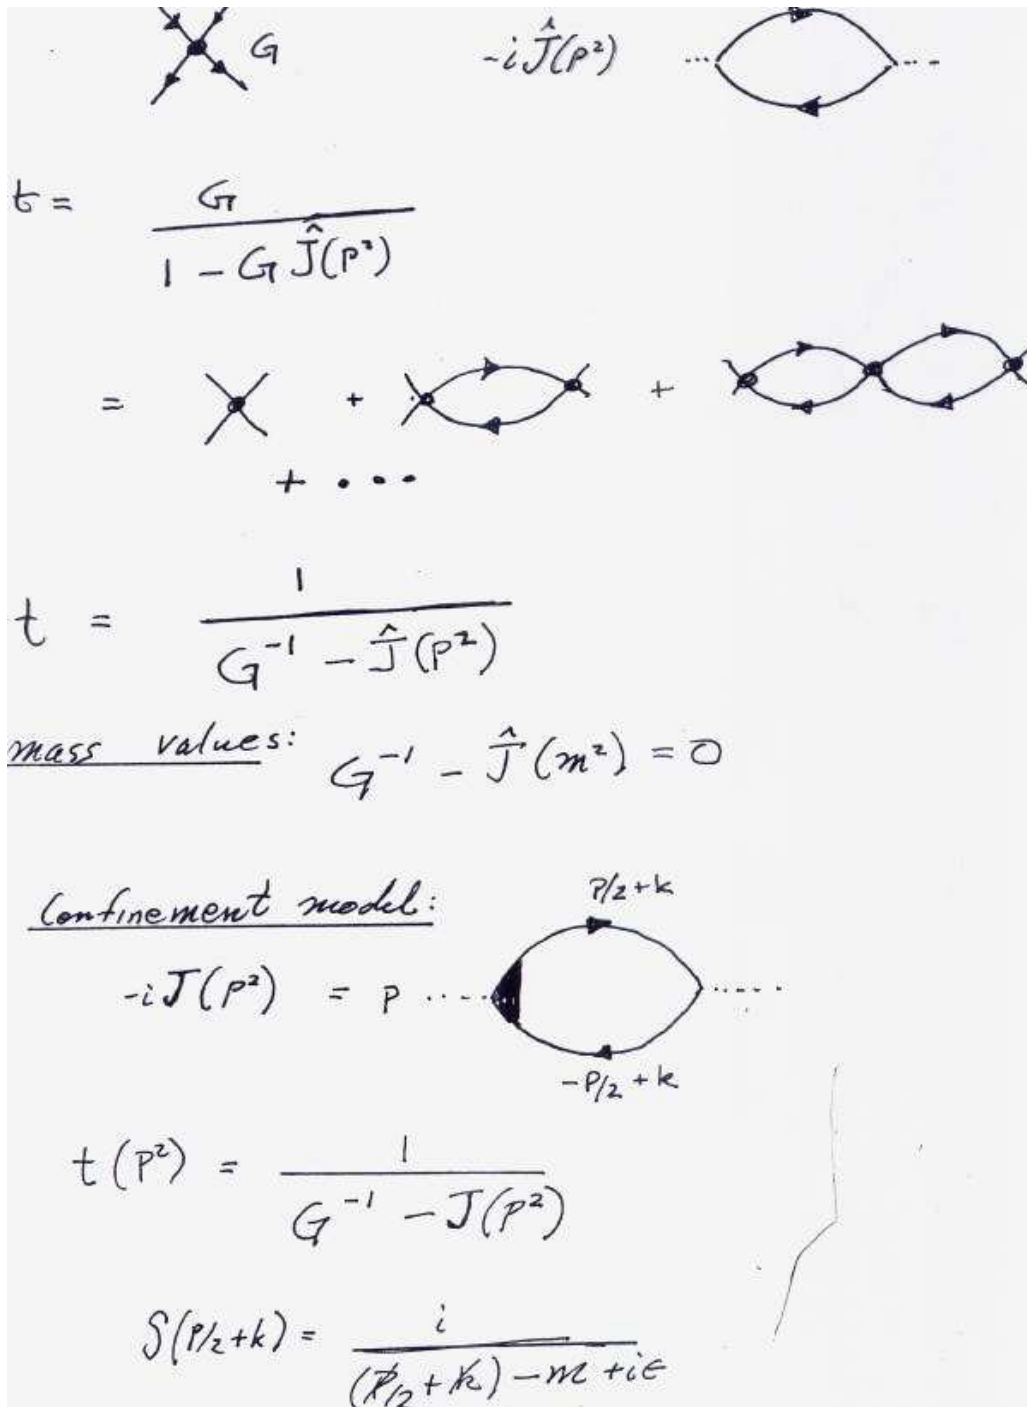 G   -iĴ(P²)   ...   ...
t = G / (1 - GĴ(P²))
=   +   +
+ ...
t = 1 / (G⁻¹ - Ĵ(P²))
mass values: G⁻¹ - Ĵ(m²) = 0
Confinement model:
P/2 + k
-iJ(P²) = P ..... .....
-P/2 + k
t(P²) = 1 / (G⁻¹ - J(P²))
S(P/2 + k) = i / ((P̸/2 + k̸) - m + iϵ)